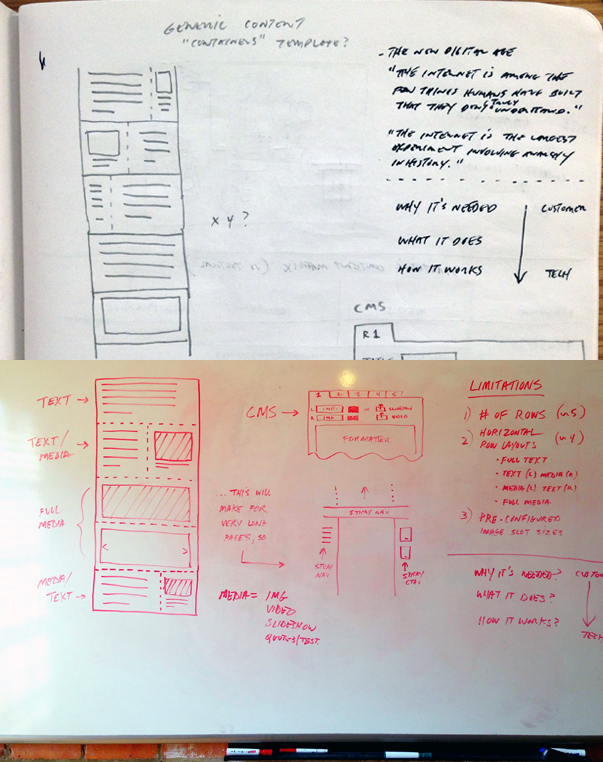 GENERIC CONTENT
"CONTAINERS" TEMPLATE?
- THE NEW DIGITAL AGE
"THE INTERNET IS AMONG THE
FEW THINGS HUMANS HAVE BUILT
THAT THEY DON'T TRULY UNDERSTAND."
"THE INTERNET IS THE LARGEST
EXPERIMENT INVOLVING ANARCHY
IN HISTORY."
X 4?
WHY IT'S NEEDED
CUSTOMER
WHAT IT DOES
HOW IT WORKS
TECH
CMS
R1
TEXT
TEXT/
MEDIA
FULL
MEDIA
MEDIA/
TEXT
CMS
1 2 3 4 5
FORMATTER
... THIS WILL
MAKE FOR
VERY LONG
PAGES, SO
STICKY NAV
STICKY
NAV
STICKY
CTA
MEDIA = IMG
VIDEO
SLIDESHOW
QUOTES/TEST.
LIMITATIONS
1) # OF ROWS (~5)
2) HORIZONTAL
ROW LAYOUTS (~4)
• FULL TEXT
• TEXT (L) MEDIA (R)
• MEDIA (L) TEXT (R)
• FULL MEDIA
3) PRE-CONFIGURED
IMAGE SLOT SIZES
WHY IT'S NEEDED?
WHAT IT DOES?
HOW IT WORKS?
TECH